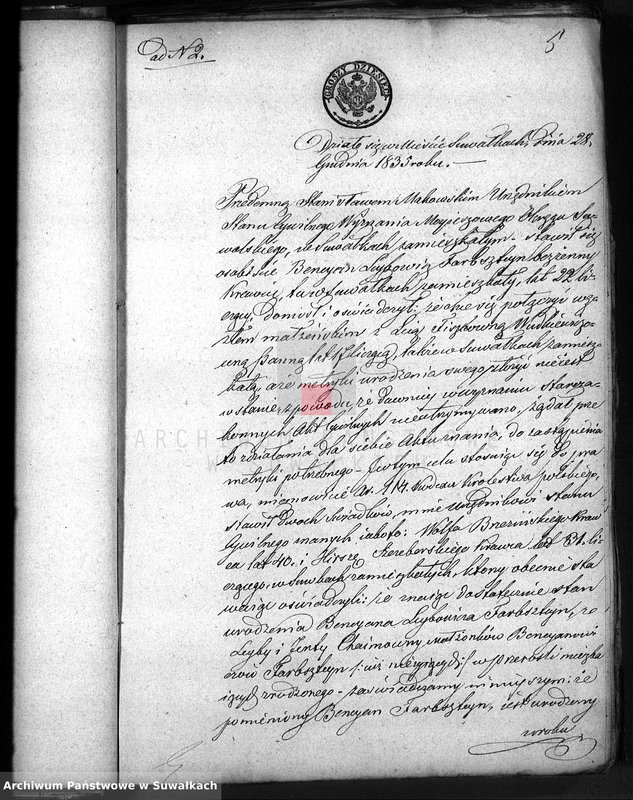 ad N 2.
5
GROSZY DZIESIĘĆ
Działo się w Mieście Suwałkach, Dnia 28.
Grudnia 1835 roku. —
Przedemną Stanisławem Makowskim Urzędnikiem
Stanu Cywilnego Wyznania Mojżeszowego Okręgu Su-
walskiego, w Suwałkach zamieszkałym - stawił się
osobiście Bencyan Leybowicz Farbsztyn bezżenny
Krawiec, tu w Suwałkach zamieszkały, lat 22 li-
czący, doniósł i oświadczył: że chce się połączyć wę-
złem małżeńskim z
panną lat liczącą, także w Suwałkach zamiesz-
kałą, a że metryki urodzenia swego złożyć nie jest
w stanie, z powodu, że dawniej w wyznaniu Staroza-
konnych Akt Cywilnych nieutrzymywano, żądał prze-
to zdziałania dla siebie Aktu znania, do zastąpienia
metryki potrzebnego - w tym celu stosując się do pra-
wa, mianowicie Ar. Kodexu Królestwa polskiego,
stawił dwóch świadków, mnie Urzędnikowi Stanu
Cywilnego znanych jakoto: Wolfa Brezińskiego Kraw-
ca lat 40. i Hirszę Szereberskiego Krawca lat 31. li-
czącego, w Suwałkach zamieszkałych, którzy obecnie sta-
wając oświadczyli: że znając dostatecznie stan
urodzenia Bencyana Leybowicza Farbsztyn, ze
Leyby i Jenty Chaimowny Małżonków Bencyanowi-
czów Farbsztyn /: już nieżyjących :/ w przerośli miesz-
zrodzonego - zaświadczamy ninieyszym: że
pomieniony Bencyan Farbsztyn, jest urodzony
w roku
ARCH
Archiwum Państwowe w Suwałkach